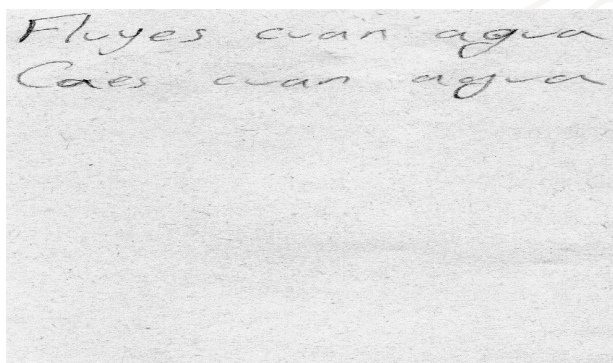 Fluyes cuan agua
Caes cuan agua